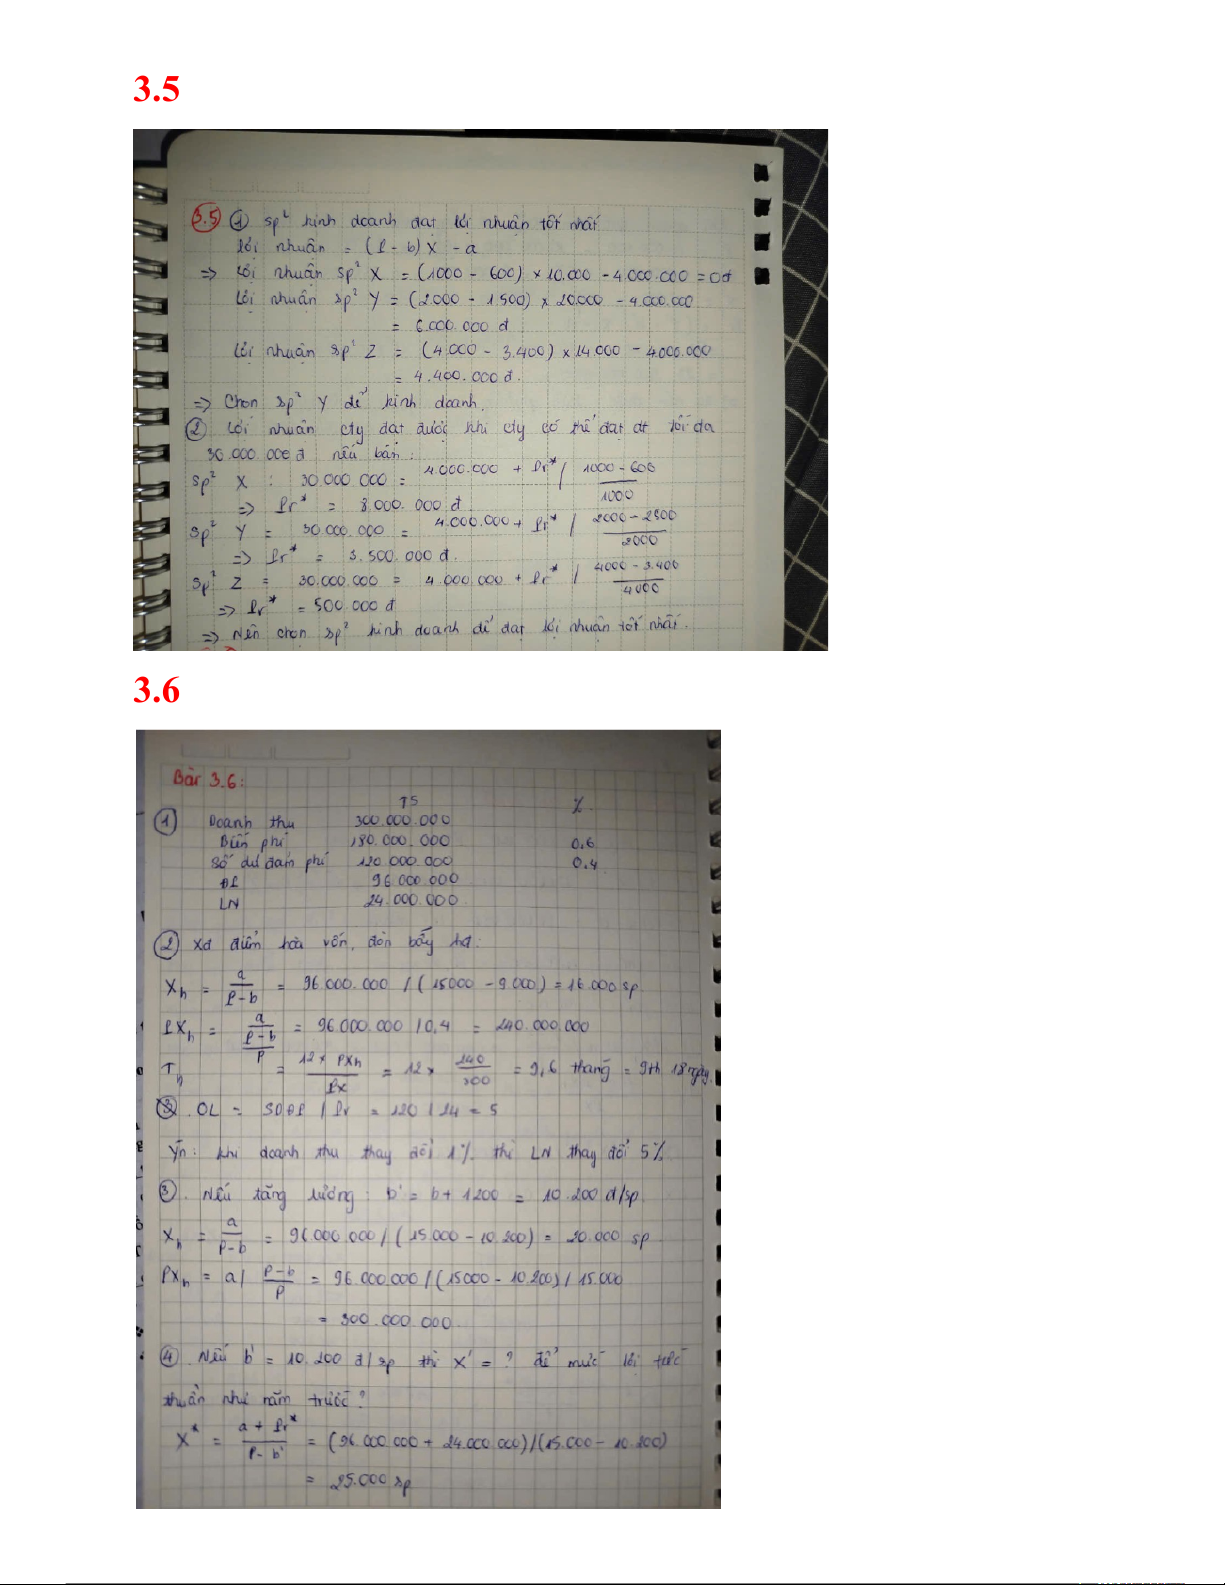 3.5
3.5 1 sp² kinh doanh đạt lợi nhuận tốt nhất
lợi nhuận = (P - b) X - a
=> Lợi nhuận sp² X = (1000 - 600) × 10.000 - 4.000.000 = 0đ
Lợi nhuận sp² Y = (2.000 - 1.500) × 20.000 - 4.000.000
= 6.000.000 đ
Lợi nhuận sp² Z = (4.000 - 3.400) × 14.000 - 4.000.000
= 4.400.000 đ.
=> Chọn sp² Y để kinh doanh.
2 Lợi nhuận cty đạt được khi cty có thể đạt dt tối đa
30.000.000 đ nếu bán:
sp² X : 30.000.000 = 4.000.000 + Pr* / 1000 - 600
1000
=> Pr* = 8.000.000 đ
sp² Y = 30.000.000 = 4.000.000 + Pr* /
2000
=> Pr* = 3.500.000 đ.
sp² Z = 30.000.000 = 4.000.000 + Pr* / 4000 - 3.400
4000
=> Pr* = 500.000 đ
=> Nên chọn sp² kinh doanh để đạt lợi nhuận tốt nhất.
3.6
Bài 3.6:
TS %
1 Doanh thu 300.000.000
Biến phí 180.000.000 0,6
Số dư đảm phí 120.000.000 0,4
ĐP 96.000.000
LN 24.000.000
2 Xđ điểm hòa vốn, đòn bẩy hđ:
Xh = a / P-b = 96.000.000 / (15000 - 9.000) = 16.000 sp
PXh = a / P-b / P = 96.000.000 / 0,4 = 240.000.000
Th = 12 × PXh / PX = 12 × 240 / 300 = 9,6 tháng = 9th 18 ngày.
OL = SDĐP / Pr = 120 / 24 = 5
Ýn: khi doanh thu thay đổi 1% thì LN thay đổi 5%
3. Nếu tăng lương: b' = b + 1200 = 10.200 đ/sp
Xh = a / P-b = 96.000.000 / (15.000 - 10.200) = 20.000 sp
PXh = a / P-b / P = 96.000.000 / (15000 - 10.200) / 15.000
= 300.000.000
4. Nếu b' = 10.200 đ/sp thì X' = ? để mức lợi tức
thuần như năm trước?
X* = a + Pr* / P - b' = (96.000.000 + 24.000.000)/(15.000 - 10.200)
= 25.000 sp